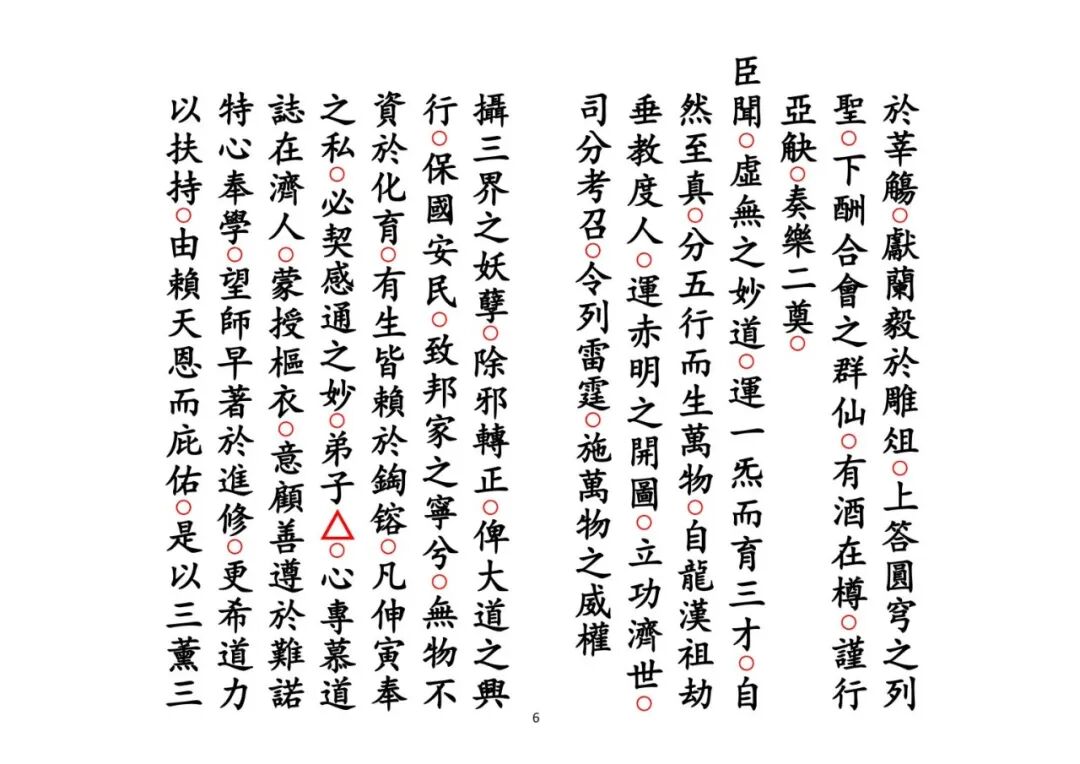 於莘觴○獻蘭毅於雕俎○上答圓穹之列
聖○下酬合會之群仙○有酒在樽○謹行
亞觖○奏樂二奠○
臣聞○虛無之妙道○運一炁而育三才○自
然至真○分五行而生萬物○自龍漢祖劫
垂教度人○運赤明之開圖○立功濟世○
司分考召○令列雷霆○施萬物之威權
攝三界之妖孽○除邪轉正○俾大道之興
行○保國安民○致邦家之寧兮○無物不
資於化育○有生皆賴於鋾镕○凡伸寅奉
之私○必契感通之妙○弟子△○心專慕道
誌在濟人○蒙授樞衣○意顧善遵於難諾
特心奉學○望師早著於進修○更希道力
以扶持○由賴天恩而庇佑○是以三薰三
6